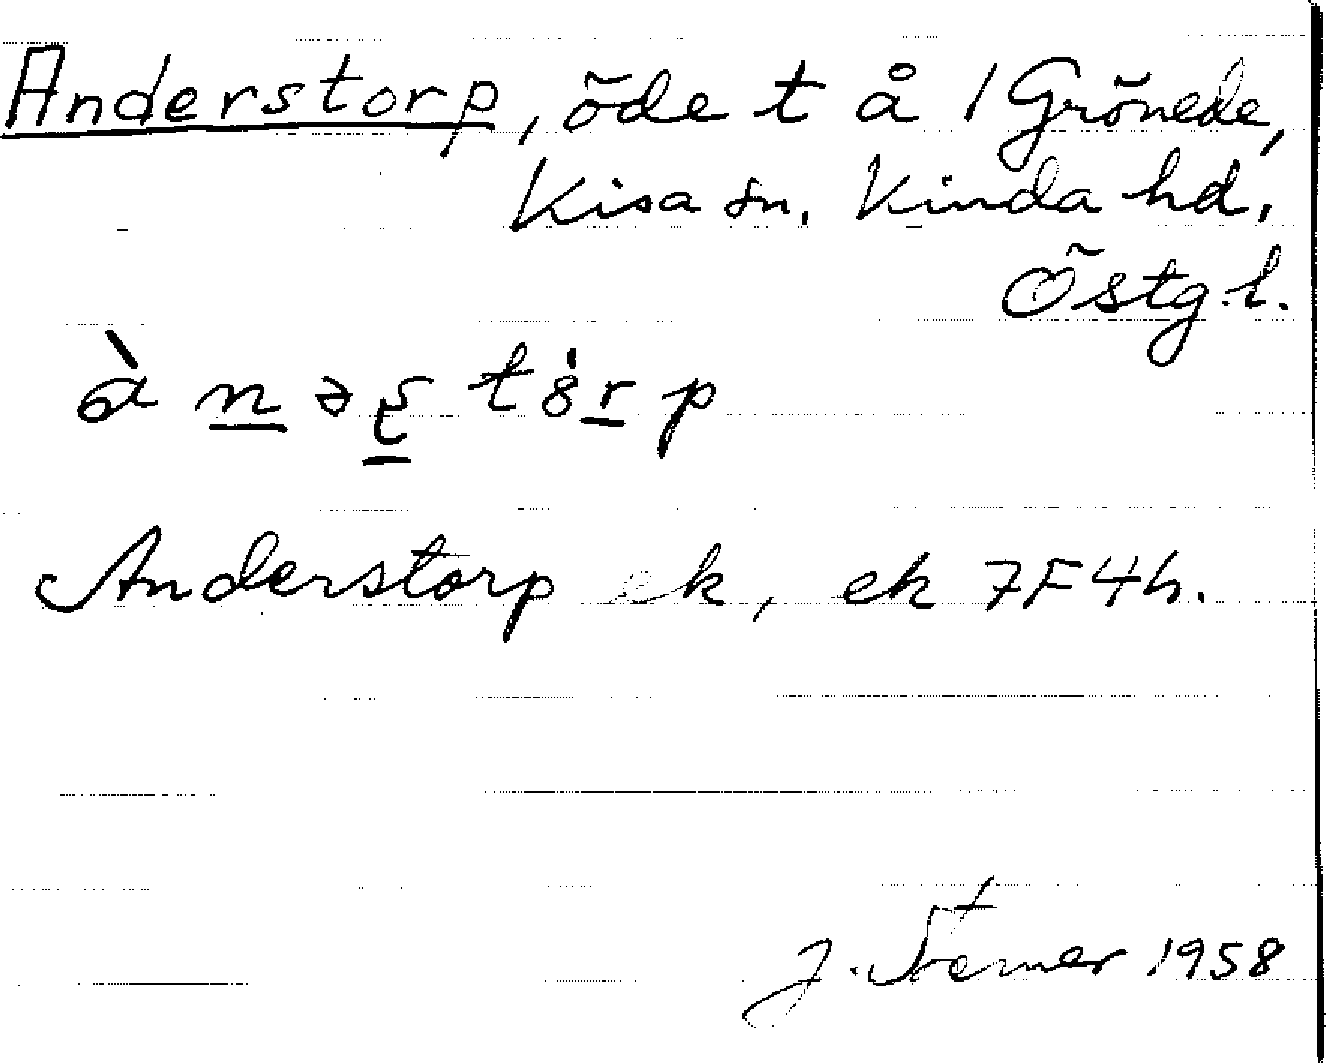 Anderstorp, öde t å 1 Grönede,
Kisa sn. Kinda hd.
Östg.l.
Anderstorp ek, ek 7F4h.
J. Sterner 1958